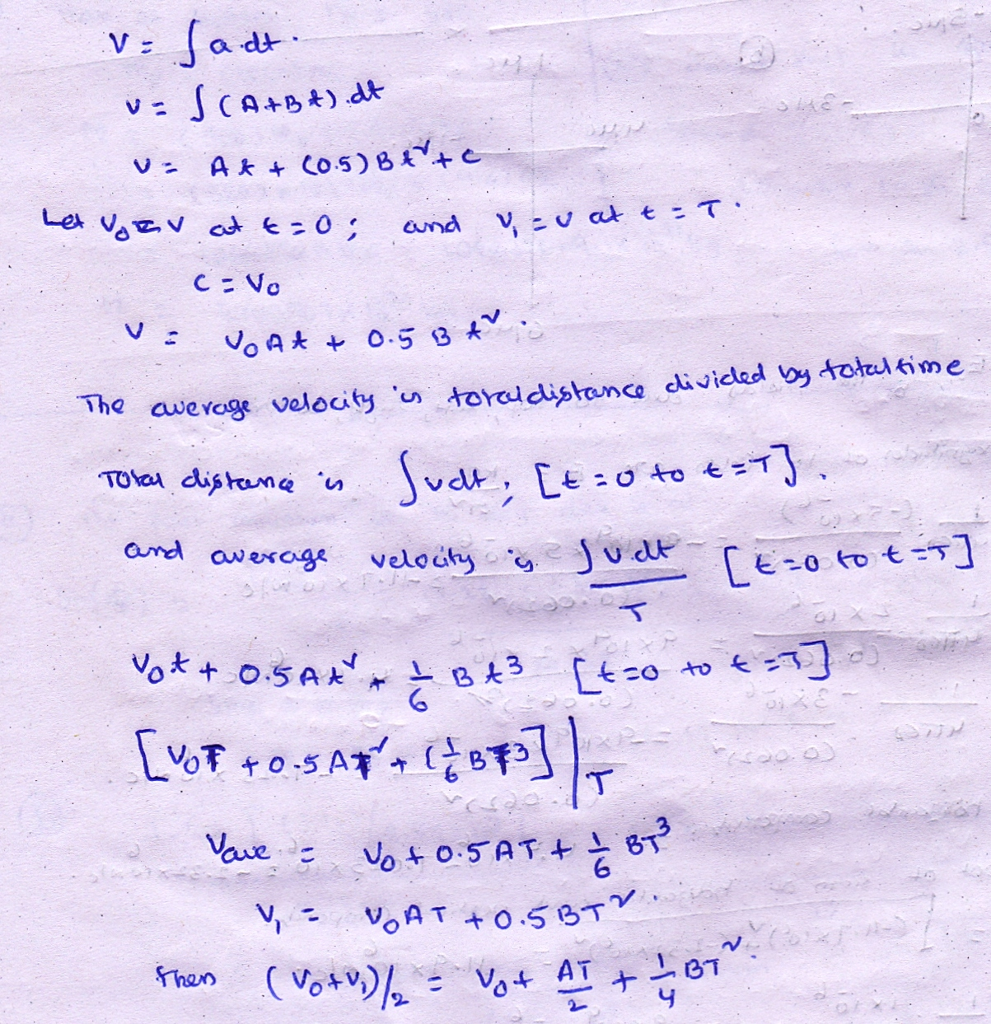 v = ∫ a.dt.
v = ∫ (A+Bt).dt
v = At + (0.5) Bt² + c
Let v₀ = v at t = 0 ; and v₁ = v at t = T.
C = V₀
v = v₀At + 0.5 Bt².
The average velocity is total distance divided by total time
Total distance is ∫vdt ; [t = 0 to t = T].
and average velocity is ∫v.dt / T [t = 0 to t = T]
V₀t + 0.5At² + 1/6 Bt³ [t = 0 to t = T]
[V₀T + 0.5AT² + (1/6 BT³] / T
Vave = V₀ + 0.5AT + 1/6 BT³
V₁ = V₀AT + 0.5BT².
then (V₀+V₁)/2 = V₀ + AT/2 + 1/4 BT².